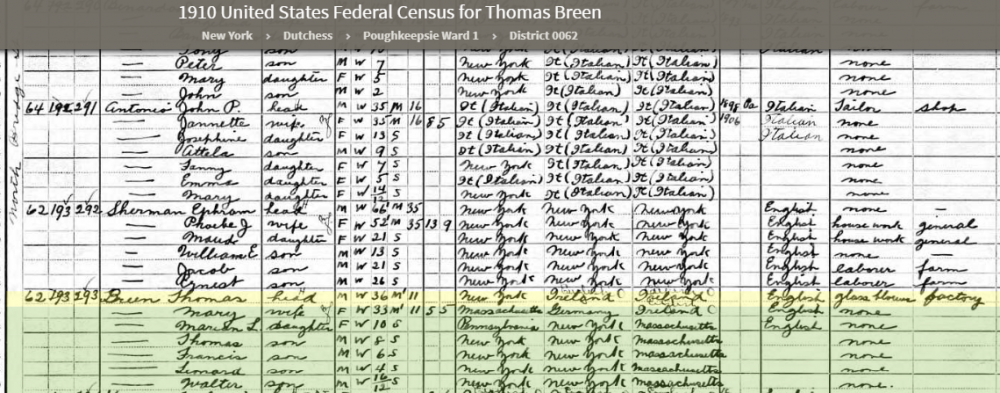 1910 United States Federal Census for Thomas Breen
New York > Dutchess > Poughkeepsie Ward 1 > District 0062
Tony son
— Peter son M W 7 New York It (Italian) It (Italian) none
— Mary daughter F W 5 New York It (Italian) It (Italian) none
— John son M W 2 New York It (Italian) It (Italian) none
64 192 291 Antonio John P. head M W 35 M 16 It (Italian) It (Italian) It (Italian) Pa Italian Tailor shop
— Jannette wife F W 35 M 16 8 5 It (Italian) It (Italian) It (Italian) 1906 Italian none
— Josephine daughter F W 13 S It (Italian) It (Italian) It (Italian) Italian none
— Attela son M W 9 S It (Italian) It (Italian) It (Italian) none
— Fanny daughter F W 7 S New York It (Italian) It (Italian) none
— Emma daughter F W 5 S It (Italian) It (Italian) It (Italian) none
— Mary daughter F W S New York It (Italian) It (Italian) none
62 193 292 Sherman Ephram head M W 66 M 35 New York New York New York English none —
— Phoebe J wife F W 52 M 35 13 9 New York New York New York English house work general
— Maud daughter F W 21 S New York New York New York English house work general
— William E son M W 13 S New York New York New York English none
— Jacob son M W 21 S New York New York New York English laborer farm
— Ernest son M W 26 S New York New York New York English laborer farm
62 193 293 Breen Thomas head M W 36 M 11 New York Ireland Ireland English glass blower factory
— Mary wife F W 33 M 11 5 5 Massachusetts Germany Ireland English none
— Marion L. daughter F W 10 S Pennsylvania New York Massachusetts English none
— Thomas son M W 8 S New York New York Massachusetts none
— Francis son M W 6 S New York New York Massachusetts none
— Leonard son M W 4 S New York New York Massachusetts none
— Walter son M W 16/12 S New York New York Massachusetts none.